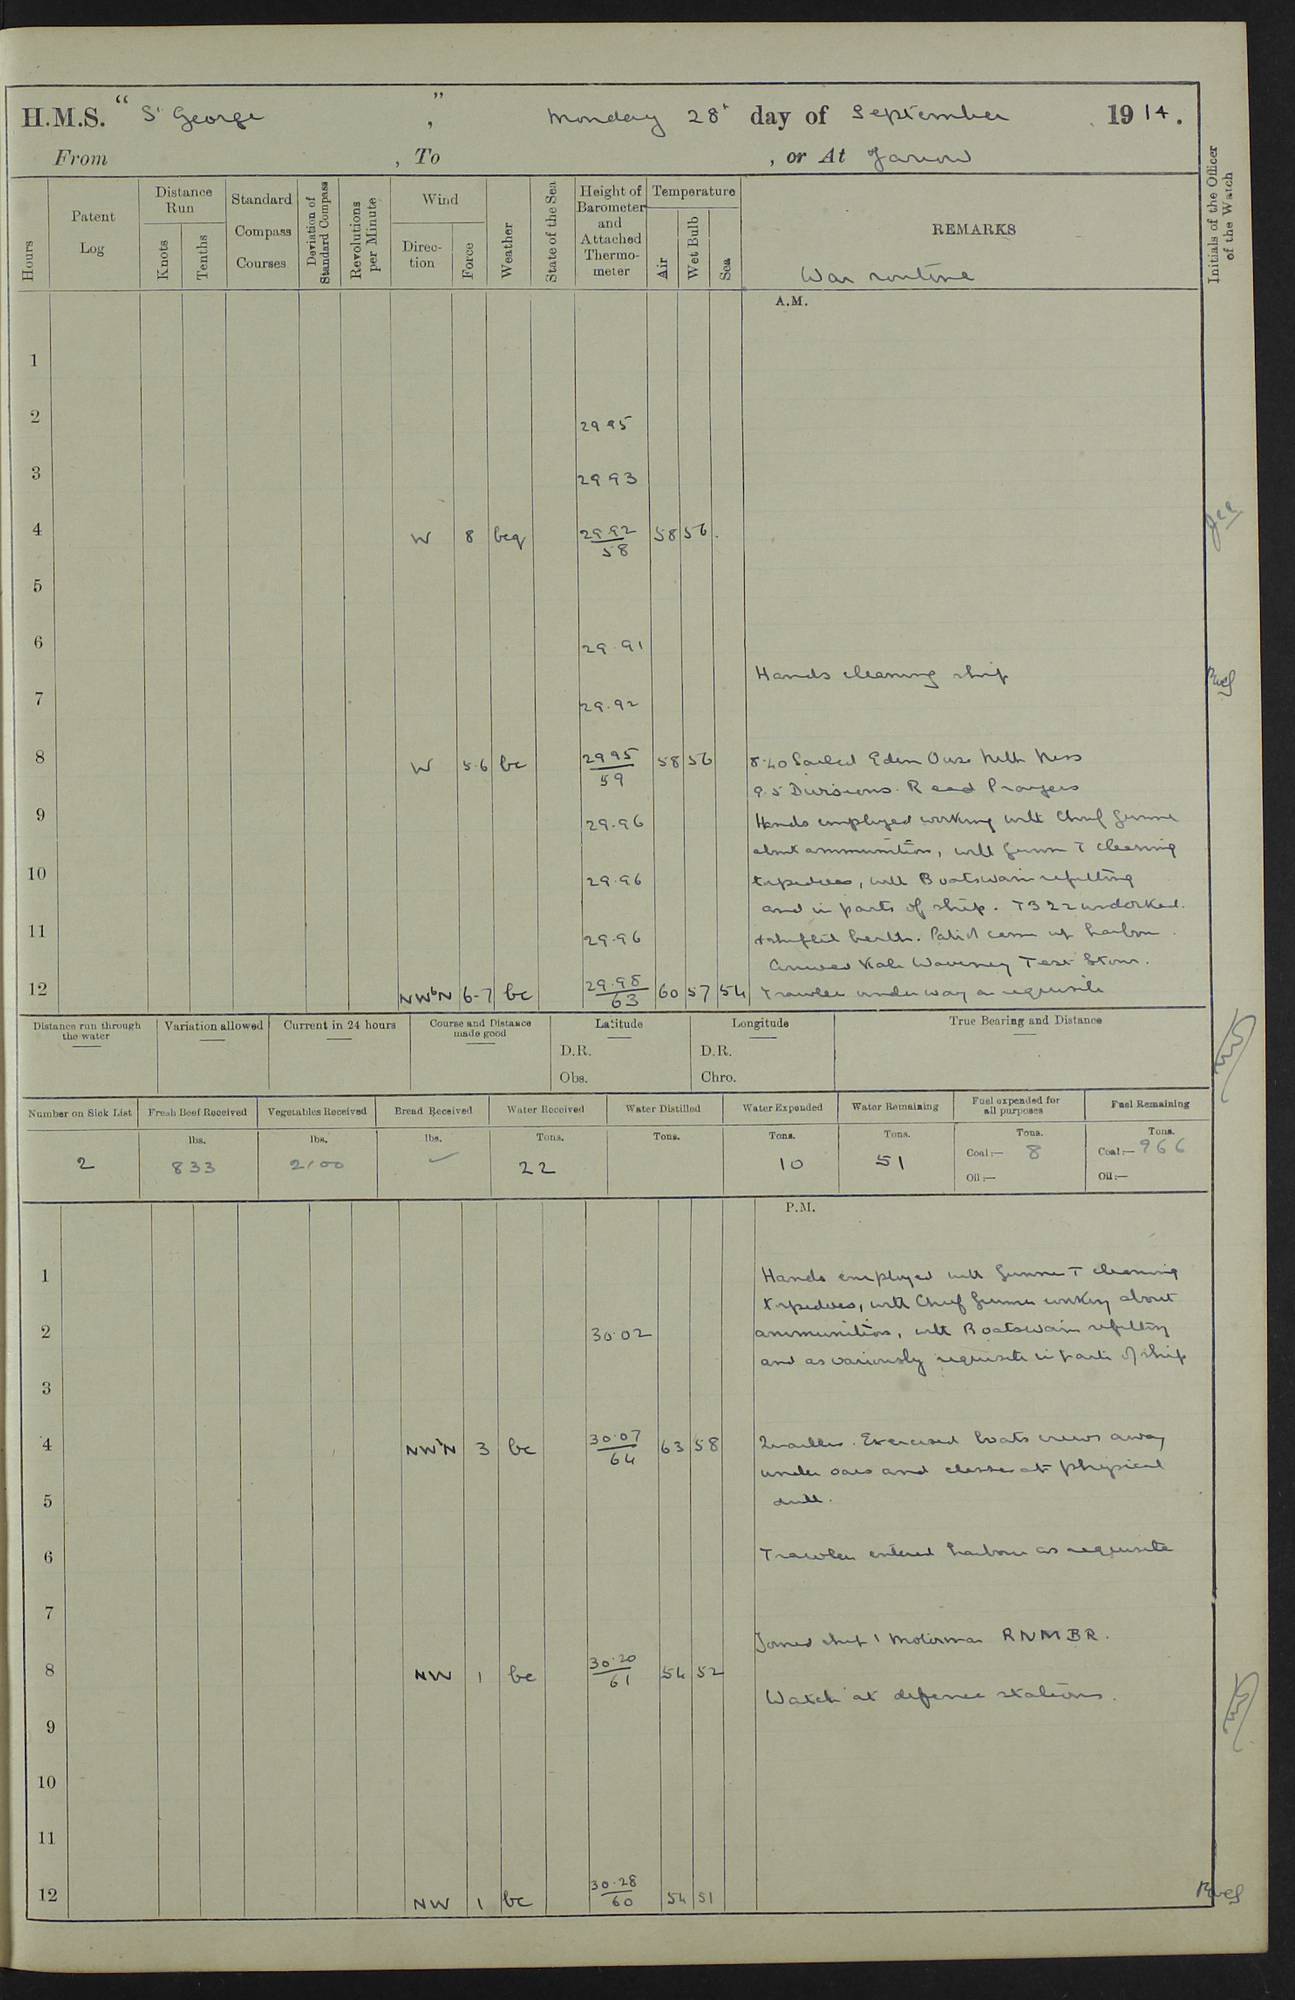 H.M.S. " St George " , Monday 28th day of September 1914.
From , To , or At Jarrow
Hours
Patent Log
Distance Run
Knots
Tenths
Standard Compass Courses
Deviation of Standard Compass
Revolutions per Minute
Wind
Direction
Force
Weather
State of the Sea
Height of Barometer and Attached Thermometer
Temperature
Air
Wet Bulb
Sea
REMARKS
Initials of the Officer of the Watch
War routine
A.M.
1
2 29 95
3 29 93
4 W 8 bcq 29.92/58 58 56
5
6 29.91
Hands cleaning ship
7 29.92
8 W 5.6 bc 29 95/59 58 56 8.40 Sailed Eden Ouse Nith Ness
9.5 Divisions. Read Prayers
9 29.96 Hands employed working with Chief Gunner
about ammunition, with Gunner T cleaning
10 29.96 torpedoes, with Boatswain refitting
and in parts of ship. TB 22 undocked
11 29.96 & shifted berth. Patrol came up harbour.
Arrived Kale Waveney Test Stour.
12 NWbN 6-7 bc 29.98/63 60 57 54 Trawlers under way as requisite
Distance run through the water
Variation allowed
Current in 24 hours
Course and Distance made good
Latitude
D.R.
Obs.
Longitude
D.R.
Chro.
True Bearing and Distance
Number on Sick List
Fresh Beef Received
Vegetables Received
Bread Received
Water Received
Water Distilled
Water Expended
Water Remaining
Fuel expended for all purposes
Fuel Remaining
lbs. lbs. lbs. Tons. Tons. Tons. Tons. Tons. Tons.
2 833 2100 22 10 51 Coal:— 8 Coal:— 966
Oil:— Oil:—
P.M.
1 Hands employed with Gunner T cleaning
torpedoes, with Chief Gunner working about
2 30.02 ammunition, with Boatswain refitting
and as variously requisite in parts of ship
3
4 NWbN 3 bc 30.07/64 63 58 Quarters. Exercised boats crews away
under oars and classes at physical
5 drill.
6 Trawlers entered harbour as requisite
7
Joined ship 1 Motorman RNMBR.
8 NW 1 bc 30.20/61 54 52
Watch at defence stations.
9
10
11
12 NW 1 bc 30.28/60 54 51